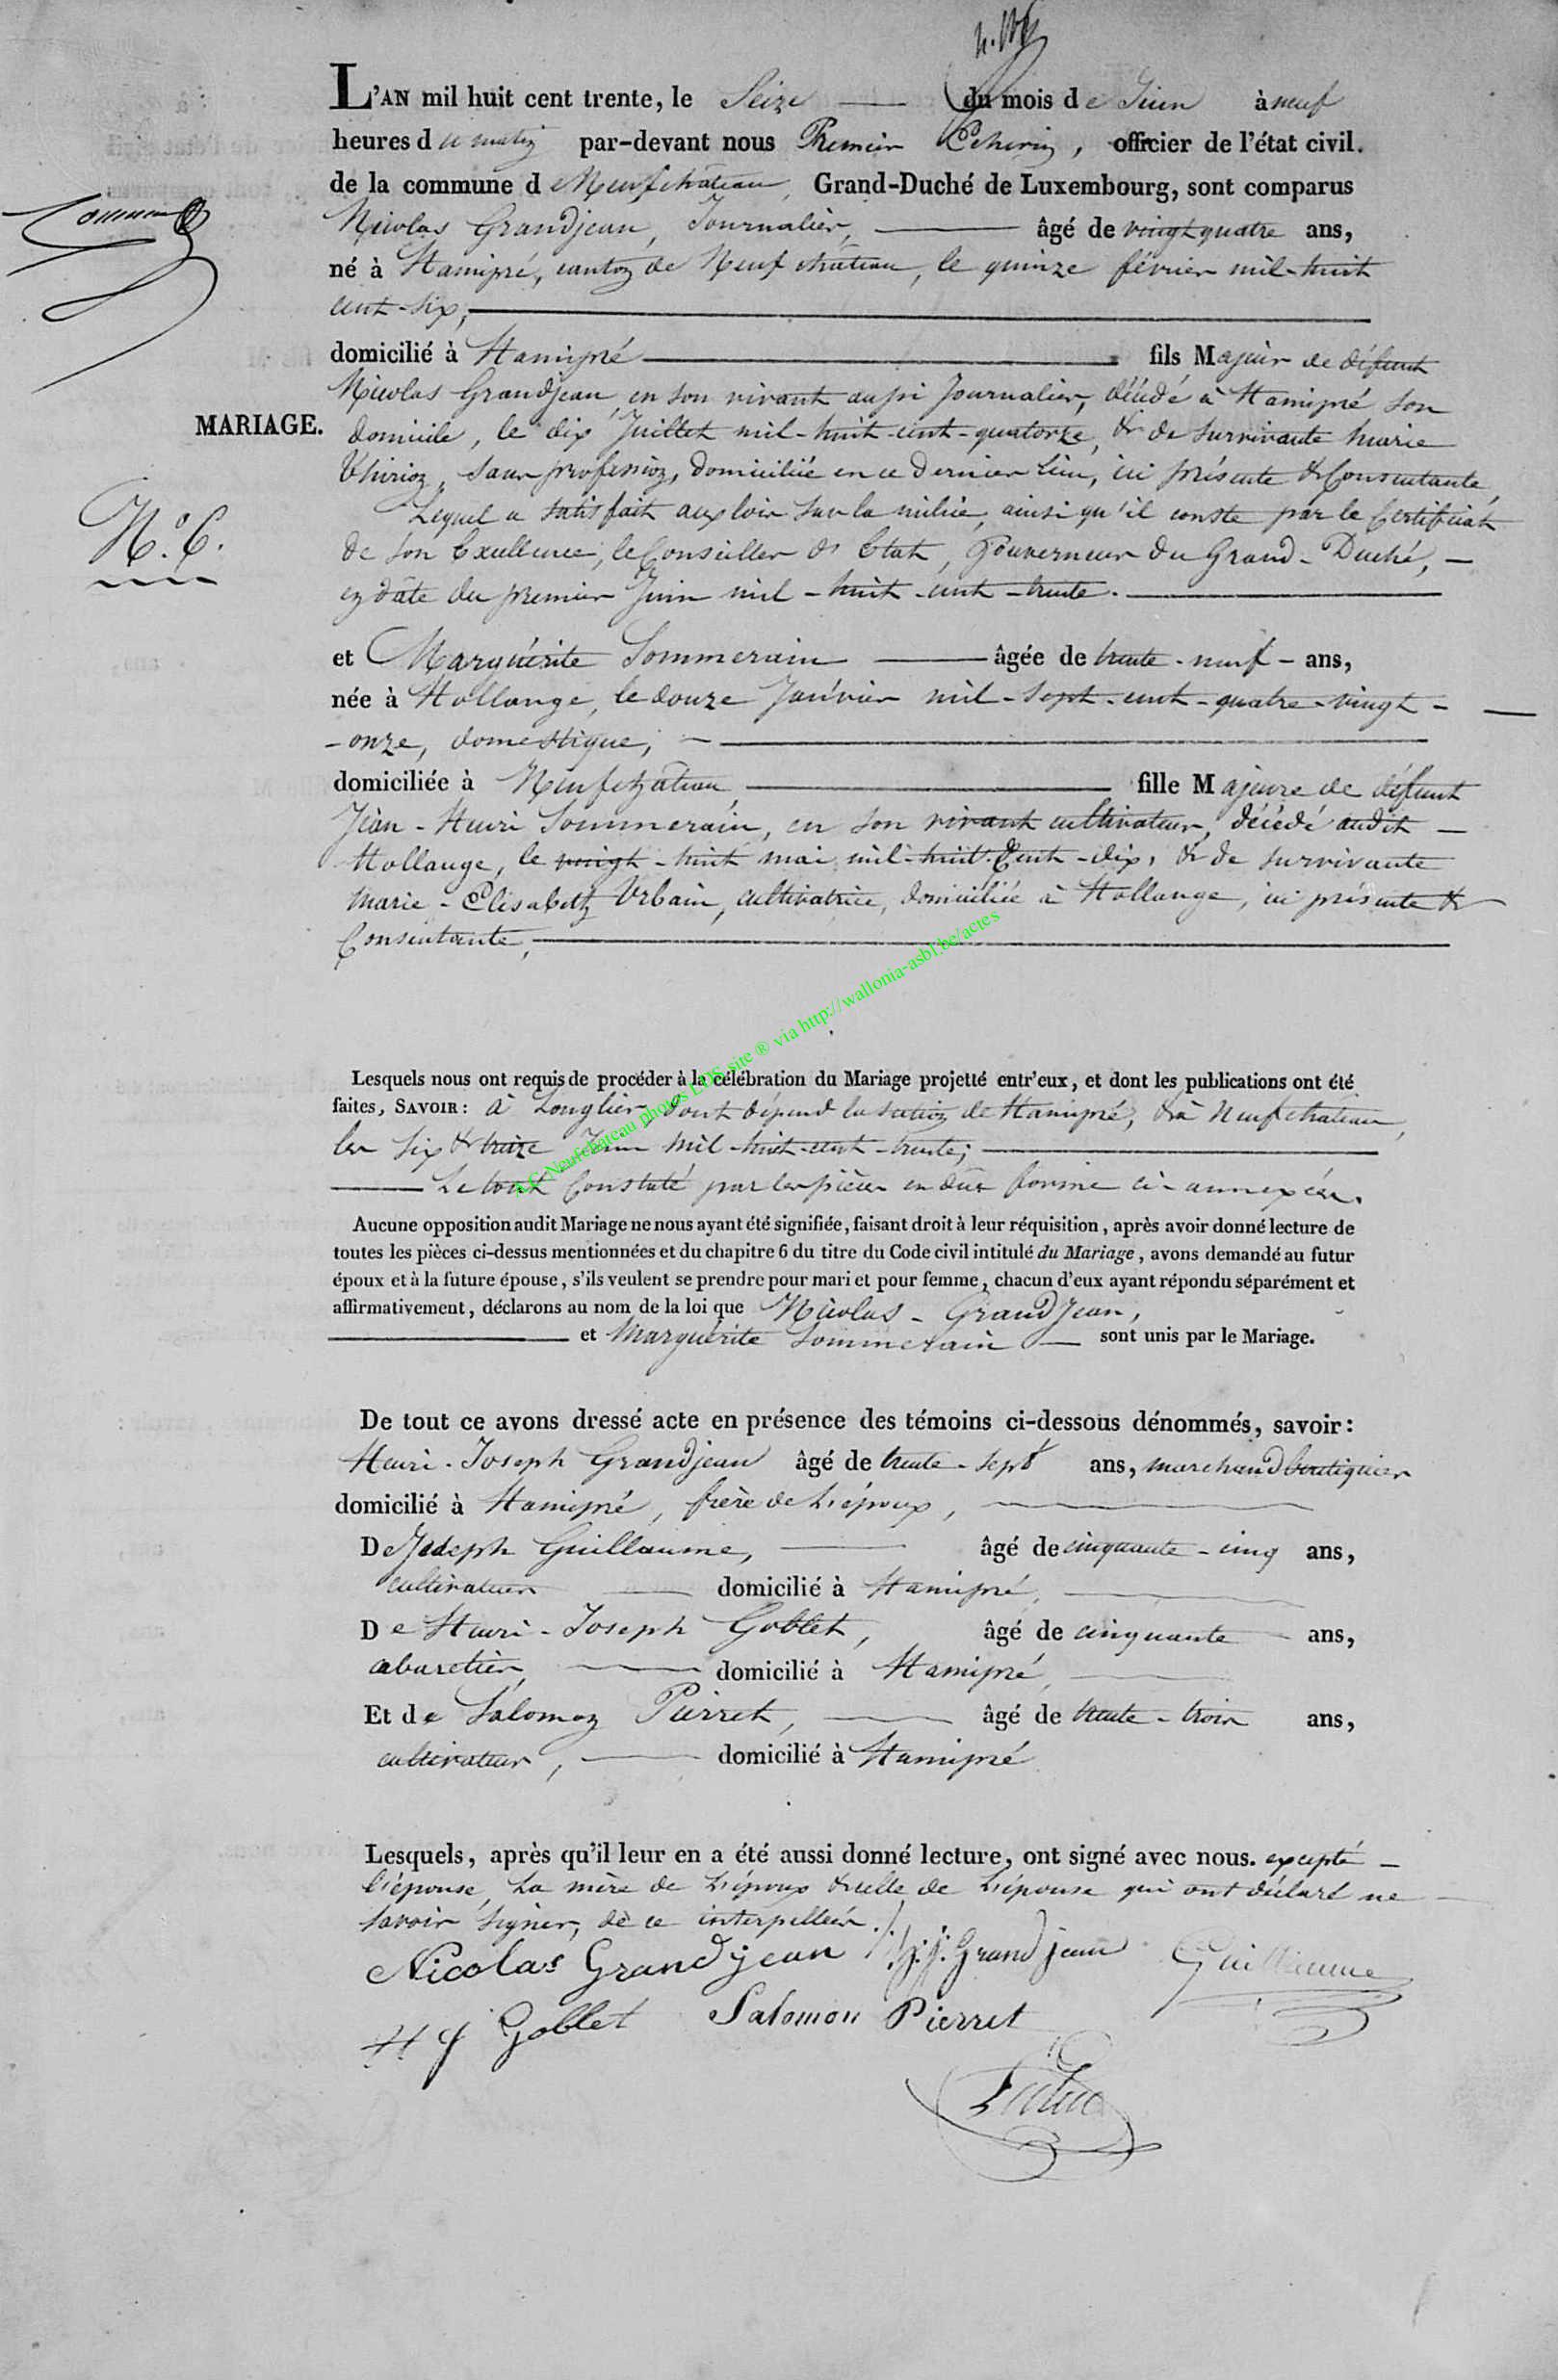 L'AN mil huit cent trente, le Seize du mois de Juin à neuf
heures du matin par-devant nous Premier Echevin, officier de l'état civil.
de la commune de Neufchâteau, Grand-Duché de Luxembourg, sont comparus
Nicolas Grandjean, Journalier, âgé de vingt quatre ans,
né à Hamipré, canton de Neufchâteau, le quinze février mil-huit
cent-six,
domicilié à Hamipré fils Majeur de défunt
Nicolas Grandjean, en son vivant aussi Journalier, décédé à Hamipré son
MARIAGE.
domicile, le dix Juillet mil-huit-cent-quatorze, & de survivante marie
Thirion, sans profession, domiciliée en ce dernier lieu, ici présente & Consentante,
Lequel a satisfait aux lois sur la milice, ainsi qu'il conste par le Certificat
N.° 6.
de Son Excellence, le Conseiller d'Etat, Gouverneur du Grand-Duché, -
en date du premier Juin mil-huit-cent-trente.
et Marguérite Sommerain âgée de trente-neuf- ans,
née à Hollange, le douze Janvier mil-sept-cent-quatre-vingt-
-onze, domestique,
domiciliée à Neufchâteau, fille Majeure de défunt
Jean-Henri Sommerain, en son vivant cultivateur, décédé audit
Hollange, le vingt-huit mai mil-huit-Cent-dix, & de survivante
Marie-Elisabeth Urbain, cultivatrice, domiciliée à Hollange, ici présente &
Consentante,
Lesquels nous ont requis de procéder à la célébration du Mariage projetté entr'eux, et dont les publications ont été
faites, SAVOIR: à Longlier dont dépend la section de Hamipré, & à Neufchateau,
les six & treize Juin mil-huit-cent-trente;
Le tout Constaté par les pièces en due forme ci-annexées.
A.C. Neufchâteau photos LDS site ® via http://wallonia-asbl.be/actes
Aucune opposition audit Mariage ne nous ayant été signifiée, faisant droit à leur réquisition, après avoir donné lecture de
toutes les pièces ci-dessus mentionnées et du chapitre 6 du titre du Code civil intitulé du Mariage, avons demandé au futur
époux et à la future épouse, s'ils veulent se prendre pour mari et pour femme, chacun d'eux ayant répondu séparément et
affirmativement, déclarons au nom de la loi que Nicolas - Grandjean,
et Marguérite Sommerain sont unis par le Mariage.
De tout ce avons dressé acte en présence des témoins ci-dessous dénommés, savoir:
Henri-Joseph Grandjean âgé de trente-sept ans, marchand boutiquier
domicilié à Hamipré, frère de L'époux,
De Joseph Guillaume, âgé de cinquante-cinq ans,
cultivateur domicilié à Hamipré,
De Henri-Joseph Goblet, âgé de cinquante ans,
cabaretier, domicilié à Hamipré,
Et de Salomon Pierret, âgé de trente-trois ans,
cultivateur, domicilié à Hamipré
Lesquels, après qu'il leur en a été aussi donné lecture, ont signé avec nous. excepté
l'épouse, La mère de L'époux & celle de L'épouse qui ont déclaré ne
savoir signer, de ce interpellées./.
Nicolas Grandjean H.J. Grandjean Guillaume
H J Goblet Salomon Pierret